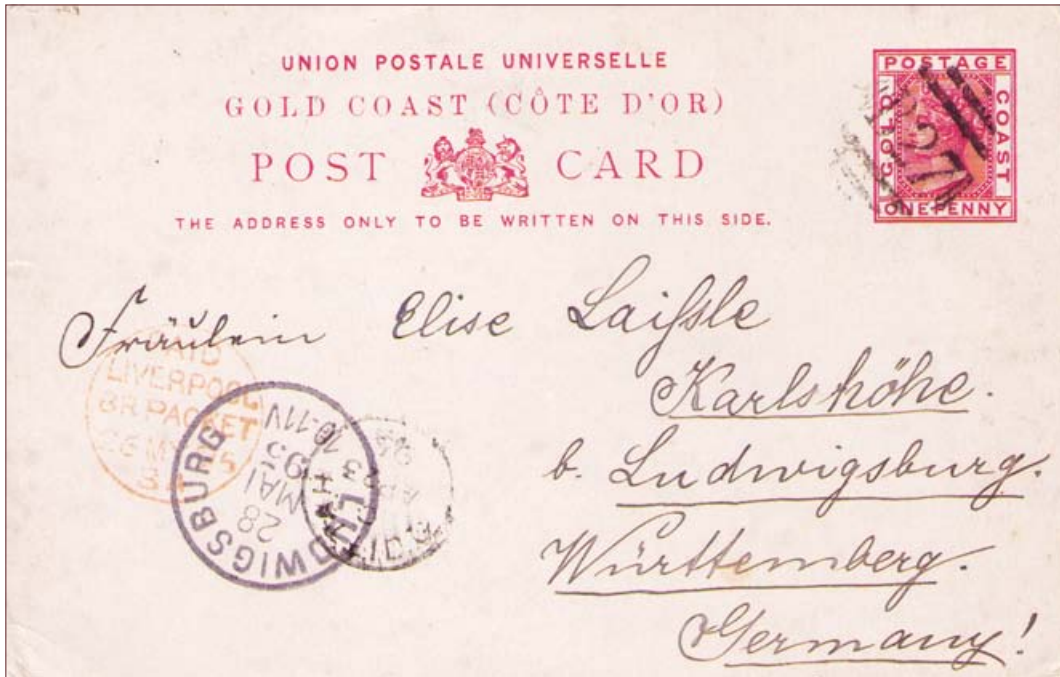 UNION POSTALE UNIVERSELLE
GOLD COAST (CÔTE D'OR)
POST CARD
THE ADDRESS ONLY TO BE WRITTEN ON THIS SIDE.
POSTAGE
GOLD COAST
ONE PENNY
Fräulein Elise Laißle
Karlshöhe.
b. Ludwigsburg.
Württemberg.
Germany!
LIVERPOOL
BR PACKET
LUDWIGSBURG
28
MAI
95
10-11V